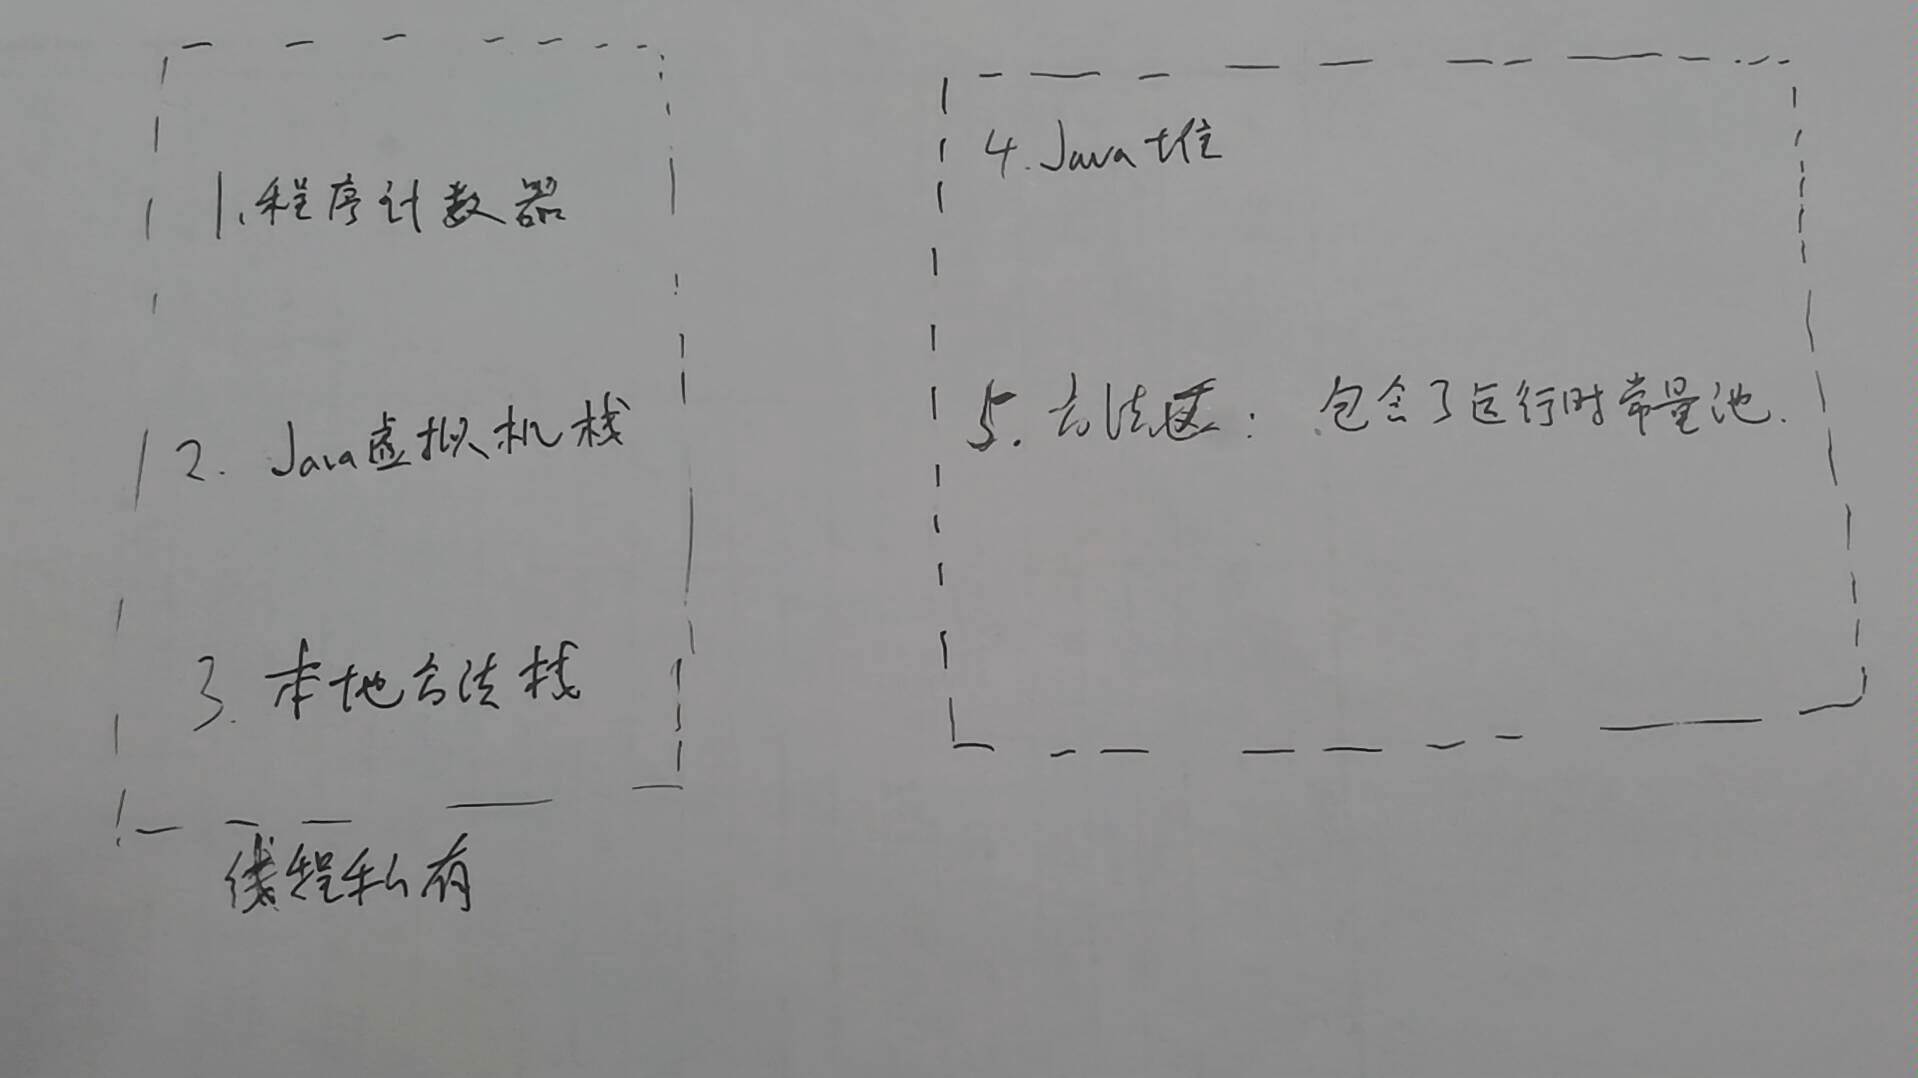 1.程序计数器
2. Java虚拟机栈
3. 本地方法栈
线程私有
4.Java堆
5.方法区：包含了运行时常量池.